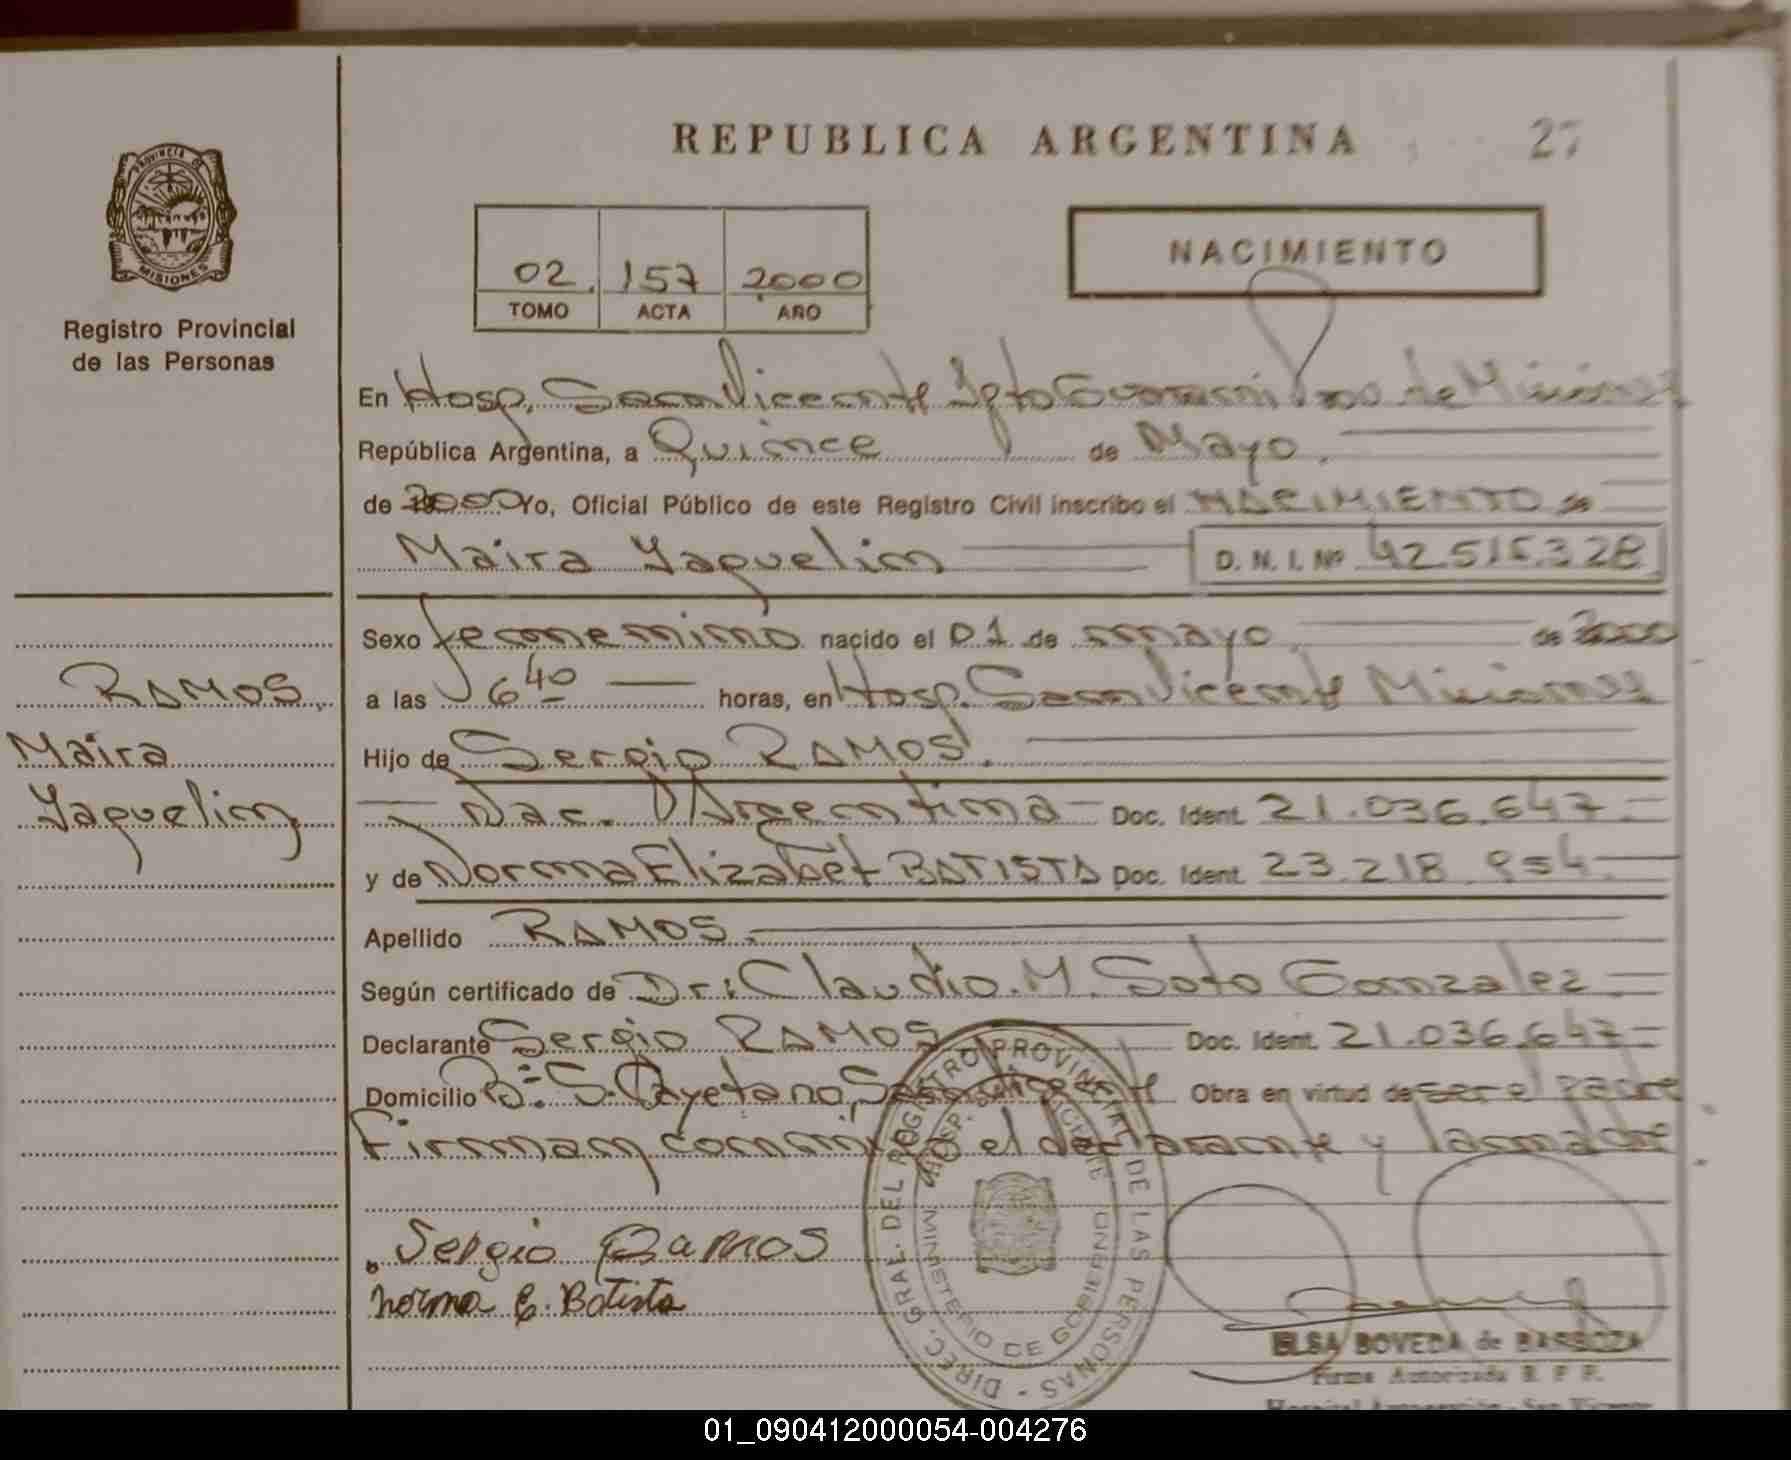 REPUBLICA ARGENTINA
27
PROVINCIA DE
MISIONES
Registro Provincial
de las Personas
NACIMIENTO
02. 157 2000
TOMO ACTA AÑO
En Hosp. San Vicente Dpto Guarani Pcia de Misiones
República Argentina, a Quince de Mayo.
de 2000 Yo, Oficial Público de este Registro Civil inscribo el NACIMIENTO de
Maira Yaquelin D. N. I. Nº 42.515.328
Sexo femenino nacido el 01 de mayo de 2000
a las 6 40 horas, en Hosp. San Vicente Misiones
Hijo de Sergio RAMOS.
Nac. Argentina Doc. Ident. 21.036.647
y de Norma Elizabet BATISTA Doc. Ident. 23.218.954
Apellido RAMOS.
Según certificado de Dr: Claudio M. Soto Gonzalez
Declarante Sergio RAMOS Doc. Ident. 21.036.647
Domicilio Bº S. Cayetano, San Vicente Obra en virtud de ser el padre
Firman conmigo el declarante y la madre
RAMOS
Maira
Yaquelin
Sergio Ramos
Norma E. Batista
DIREC. GRAL. DEL REGISTRO PROVINCIAL DE LAS PERSONAS
HOSP. SAN VICENTE
MINISTERIO DE GOBIERNO
ELSA BOVEDA de BARBOZA
Firma Autorizada R. P. P.
01_090412000054-004276